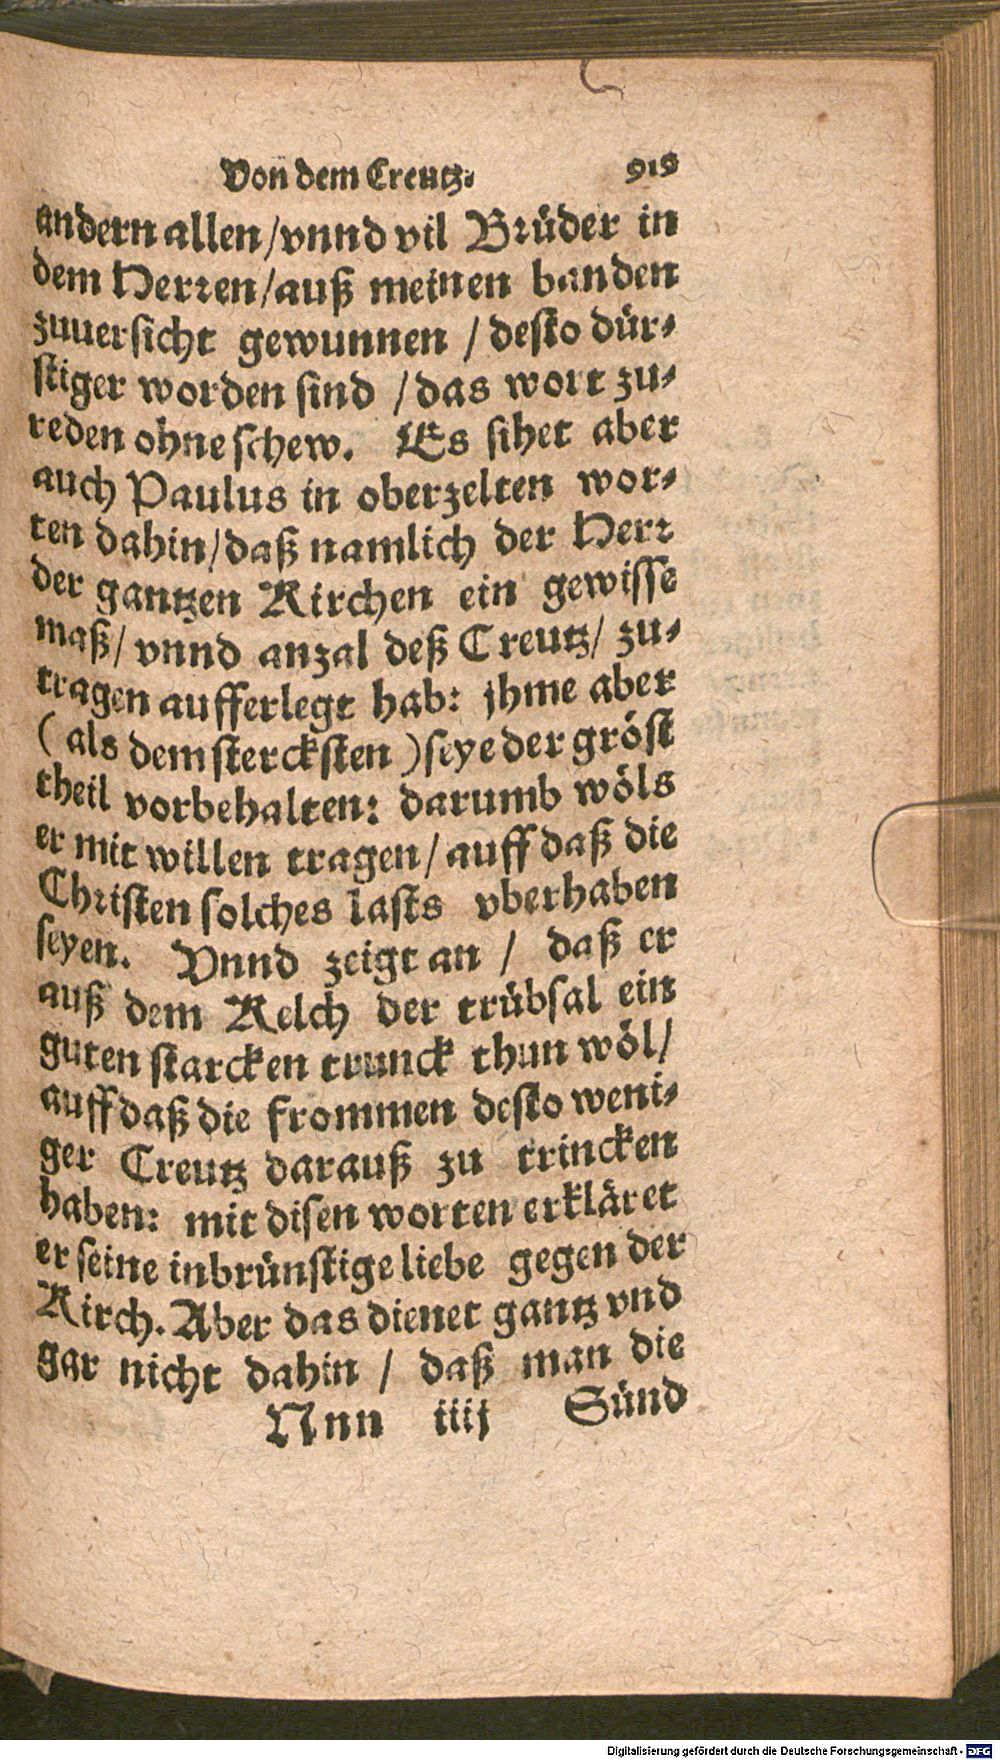 Von dem Creutz. 919
andern allen/vnnd vil Brüder in
dem Herren/auß meinen banden
zuuersicht gewunnen / desto dür-
stiger worden sind / das wort zu-
reden ohne schew. Es sihet aber
auch Paulus in oberzelten wor-
ten dahin/daß namlich der Herr
der gantzen Kirchen ein gewisse
maß/ vnnd anzal deß Creutz/ zu-
tragen aufferlegt hab: jhme aber
(als dem stercksten) seye der gröst
theil vorbehalten: darumb wöls
er mit willen tragen/ auff daß die
Christen solches lasts vberhaben
seyen. Vnnd zeigt an / daß er
auß dem Kelch der trübsal ein
guten starcken trunck thun wöl/
auff daß die frommen desto weni-
ger Creutz darauß zu trincken
haben: mit disen worten erkläret
er seine inbrünstige liebe gegen der
Kirch. Aber das dienet gantz vnd
gar nicht dahin / daß man die
Nnn iiij Sünd
Digitalisierung gefördert durch die Deutsche Forschungsgemeinschaft - DFG